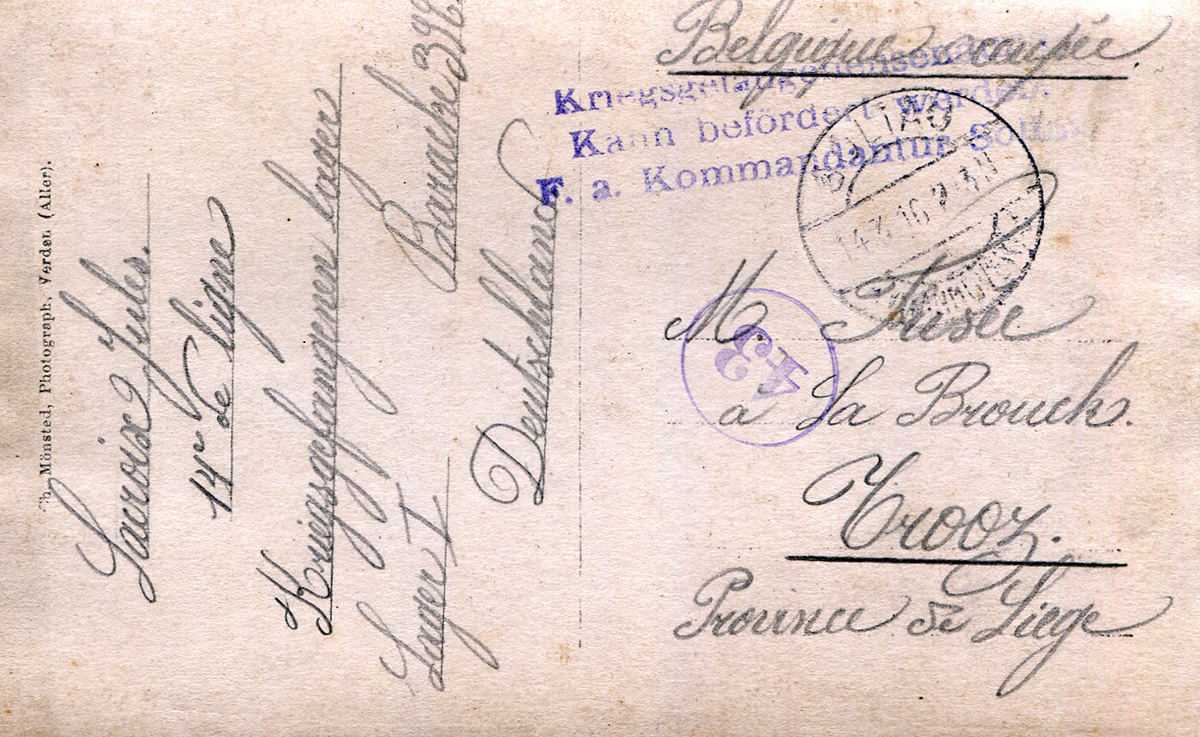 Th. Mönsted, Photograph, Verden (Aller).
Lacroix Jules.
14e de Ligne
Kriegsgefangnen lager
Lager I Baracke
Deutschland
Belgique occupée
Kriegsgefangenensendung
Kann befördert werden.
F. a. Kommandantur Soltau
SOLTAU
43
M.
a La Brouck.
Trooz.
Province de Liege